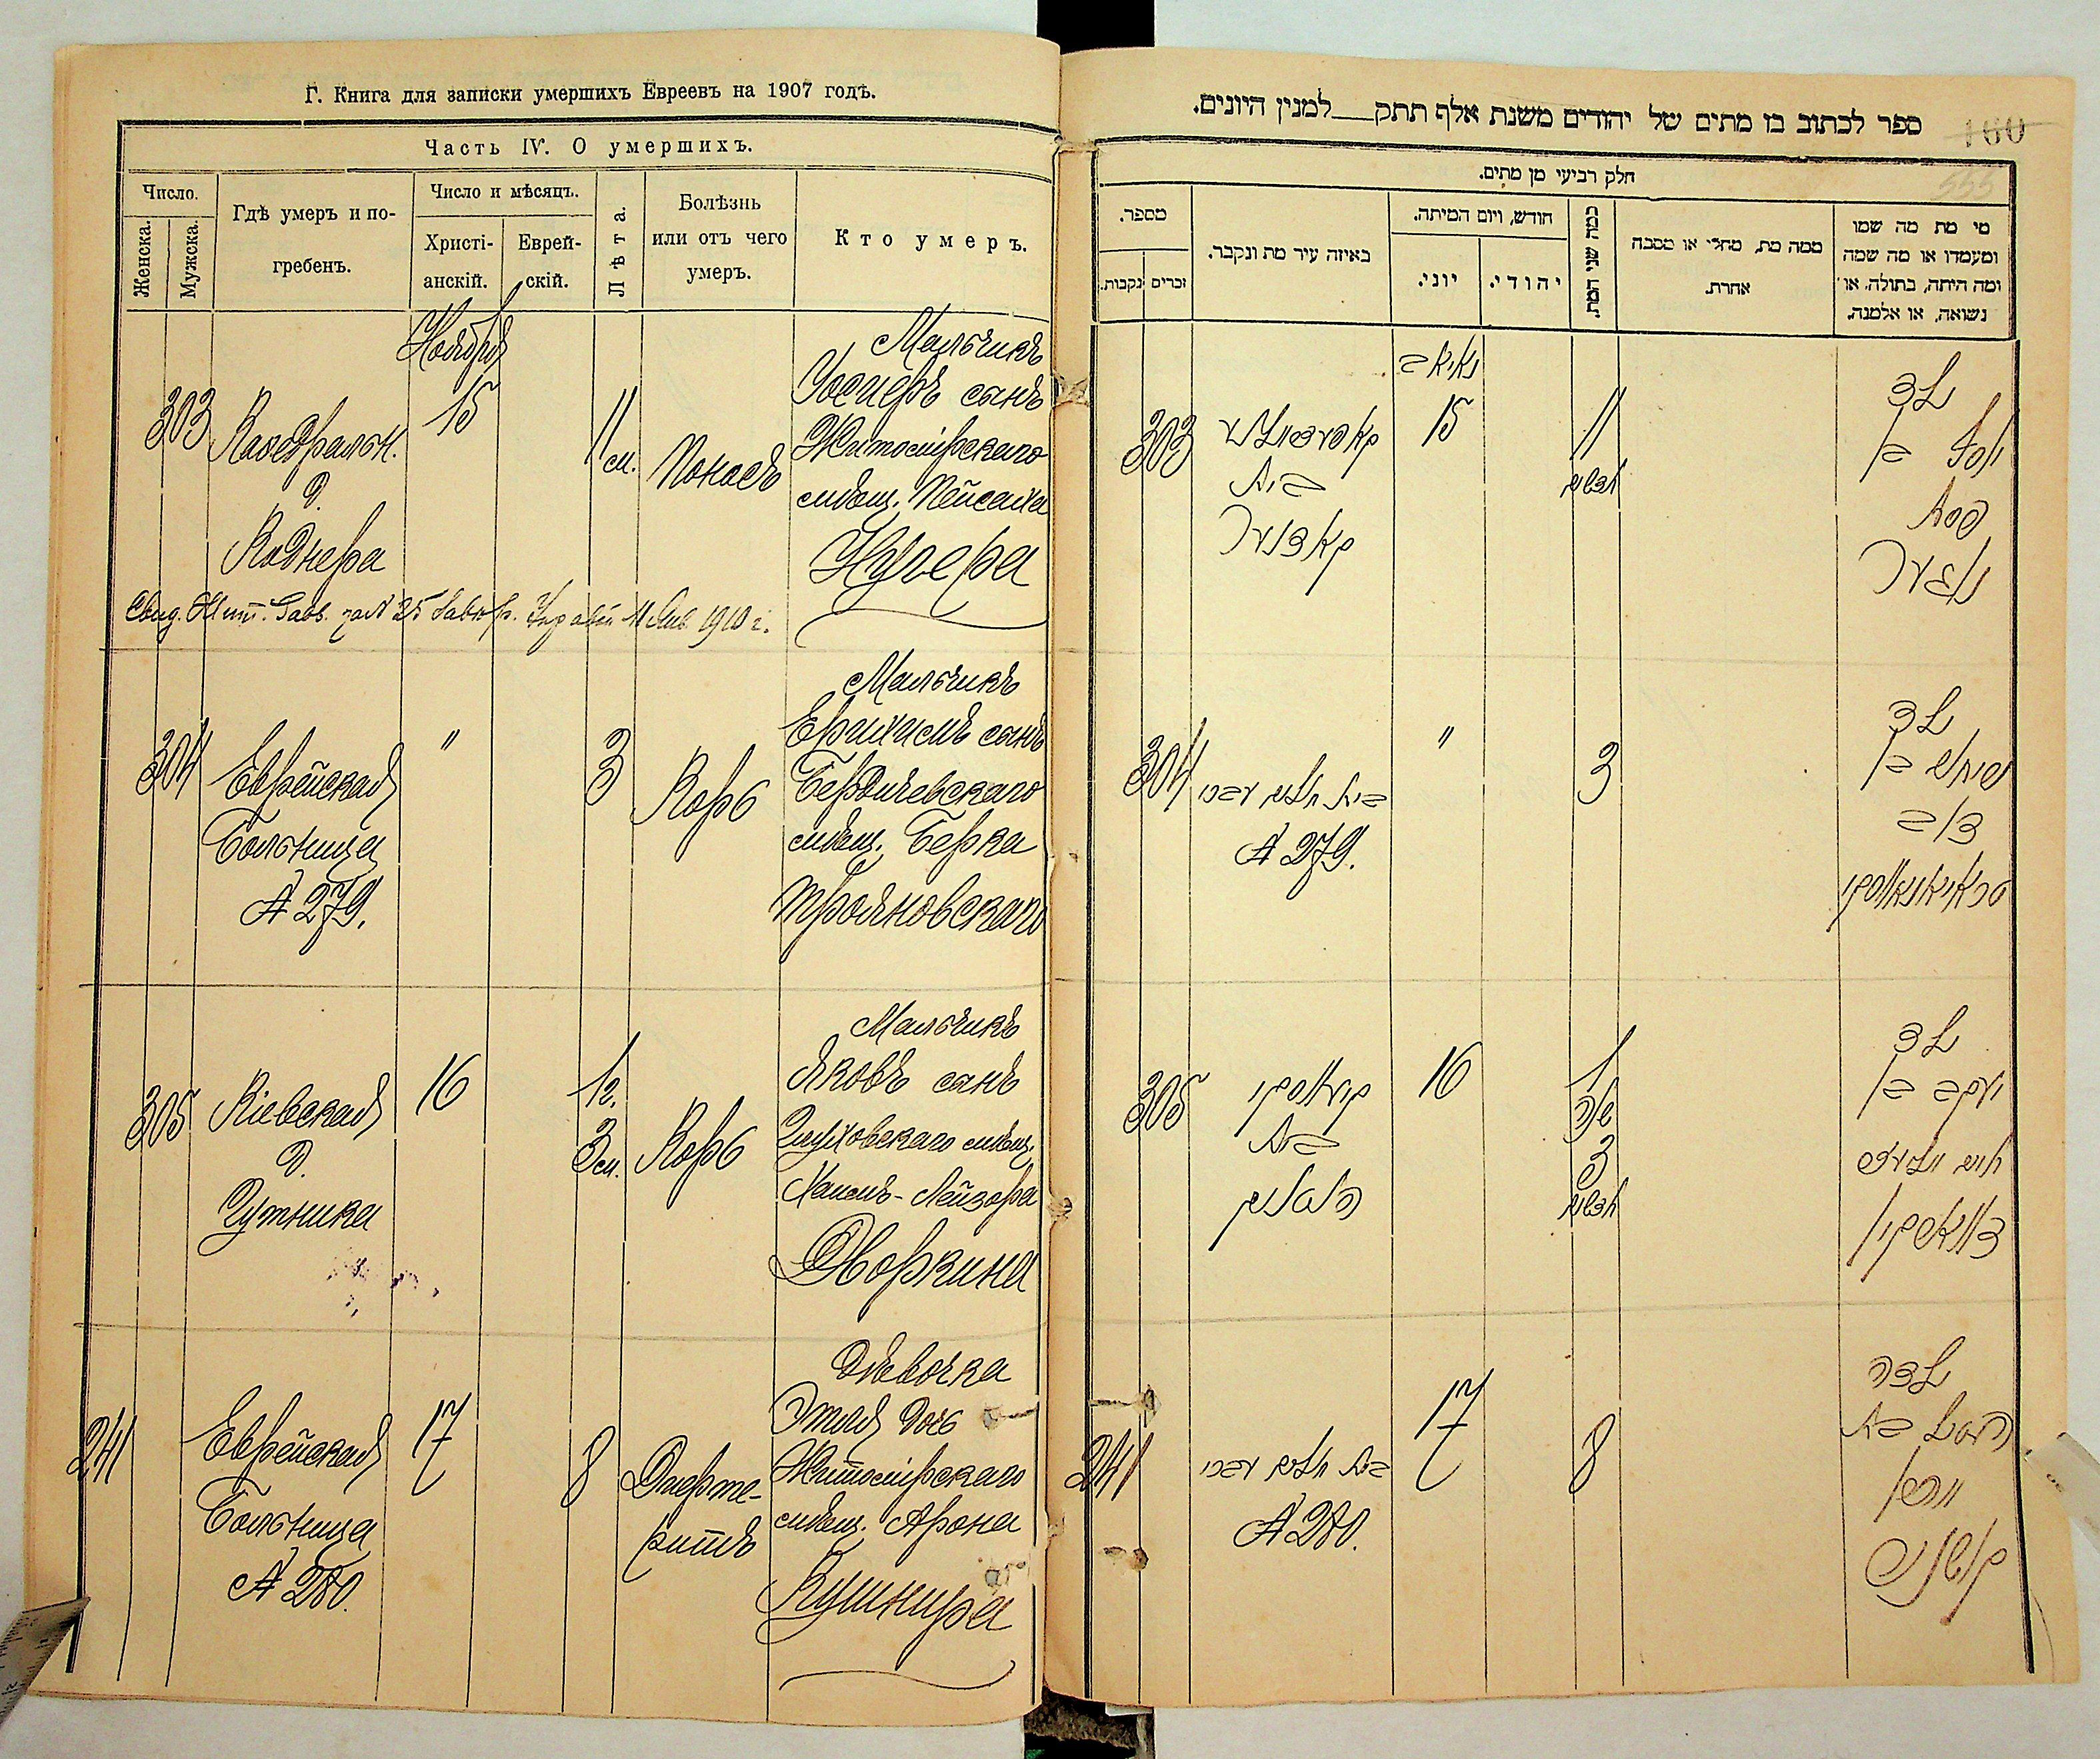 Г. Книга для записки умершихъ Евреевъ на 1907 годъ.
Часть IV. О умершихъ.
Число.
Женска.
Мужска.
Гдѣ умеръ и по-
гребенъ.
Число и мѣсяцъ.
Христі-
анскій.
Еврей-
скій.
Лѣта.
Болѣзнь
или отъ чего
умеръ.
Кто умеръ.
Ноября
303
Каѳедральн.
д.
Коднера
15
11
м.
Поносъ
Мальчикъ
сынъ
Житомірскаго
мѣщ. Пейсаха
Нугера
304
Еврейская
Больница
№ 279.
"
3
Корь
Мальчикъ
сынъ
Бердичевскаго
мѣщ. Берка
Трояновскаго
305
Кіевская
д.
Гутника
16
1 г.
3 м.
Корь
Мальчикъ
Яковъ сынъ
мѣщ.
Хаимъ-Лейзора
Дворкина
241
Еврейская
Больница
№ 280.
17
8
Дифте-
ритъ
Дѣвочка
дочь
Житомірскаго
мѣщ. Арона
Кушнира
ספר לכתוב בו מתים של יהודים משנת אלף תתק למנין היונים.
160
חלק רביעי מן מתים.
מספר.
זכרים
נקבות.
באיזה עיר מת ונקבר.
חודש, ויום המיתה.
יוני.
יהודי.
כמה שני המת.
ממה מת, מחלי או מסבה
אחרת.
מי מת מה שמו
ומעמדו או מה שמה
ומה היתה, בתולה, או
נשואה, או אלמנה.
303
בית
קאדנער
15
11
חדשים
ילד
יוסף בן
פסח
נוגער
304
בית חולים עברי
№ 279.
"
3
ילד
בן
דוב
טראיאנאווסקי
305
קיעווסקי
בית
16
1
שנה
3
חדשים
ילד
יעקב בן
חיים
דווארקין
241
בית חולים עברי
№ 280.
17
8
ילדה
בת
אהרן
קושניר